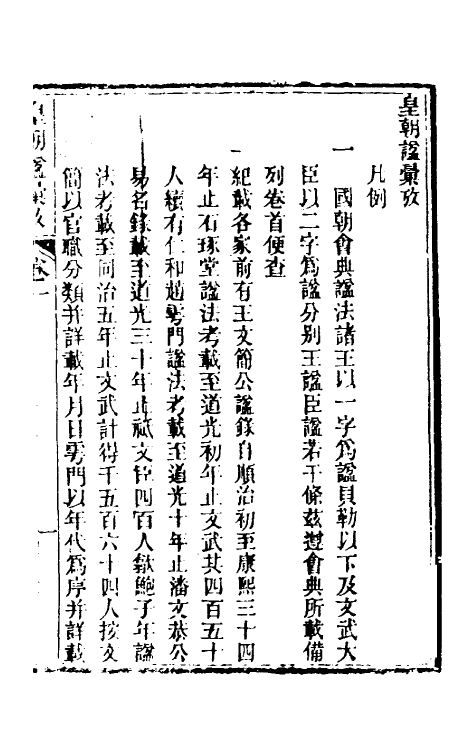 皇朝諡彙攷
凡例
一 國朝會典諡法諸王以一字爲諡貝勒以下及文武大
臣以二字爲諡分別王諡臣諡若干條茲遵會典所載備
列卷首便查
一 紀載各家前有王文簡公諡錄自順治初至康熙三十四
年止石琢堂諡法考載至道光初年止文武共四百五十
人續有仁和趙雩門諡法考載至道光十年止潘文恭公
易名錄載至道光三十年止祗文臣四百人歙鮑子年諡
法考載至同治五年止文武計得千五百六十四人按文
簡以官職分類并詳載年月日雩門以年代爲序并詳載
皇朝諡彙攷 卷一 一